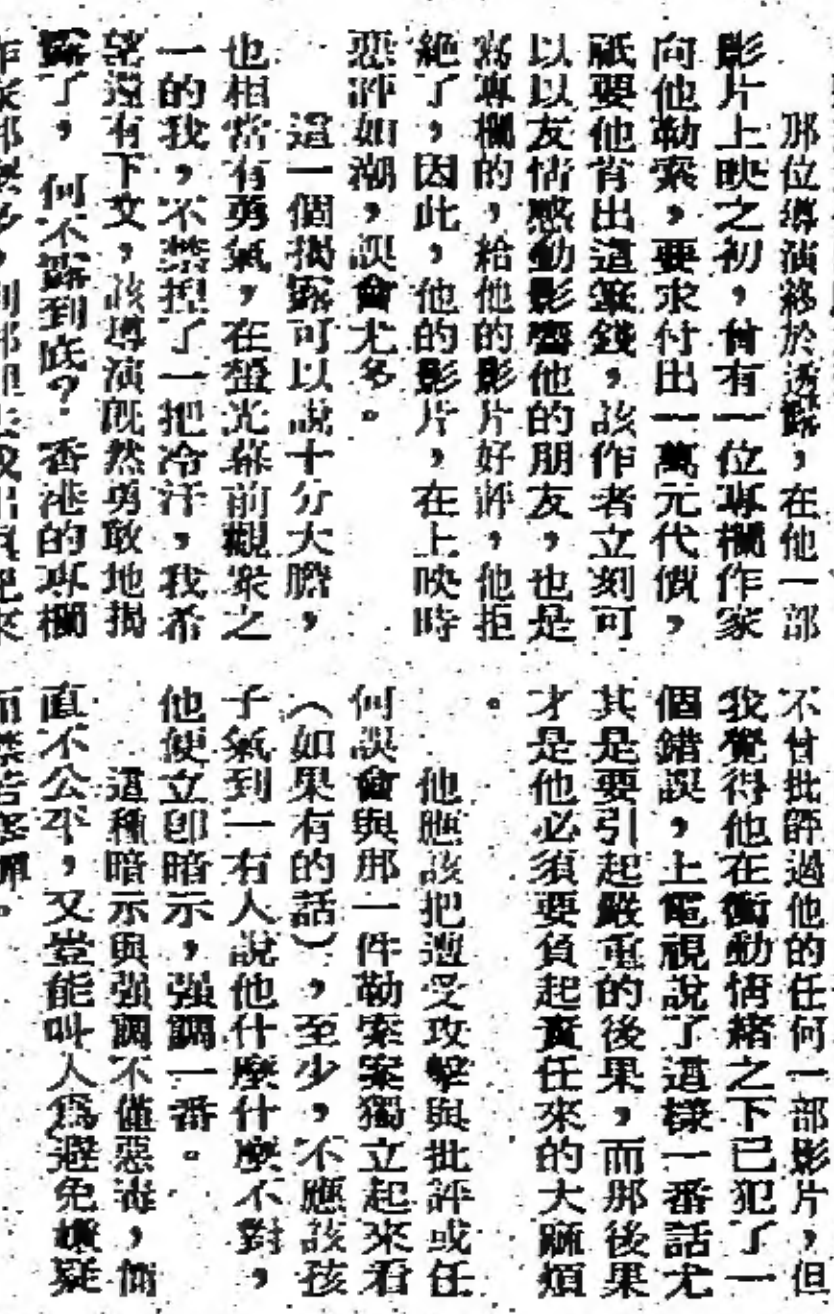 那位導演終於透露，在他一部
影片上映之初，曾有一位專欄作家
向他勒索，要求付出一萬元代價，
祇要他肯出這筆錢，該作者立刻可
以以友情感動影響他的朋友，也是
寫專欄的，給他的影片好評，他拒
絕了，因此，他的影片，在上映時
惡評如潮，誤會尤多。
這一個揭露可以說十分大膽，
也相當有勇氣，在螢光幕前觀衆之
一的我，不禁揑了一把冷汗，我希
望還有下文，該導演旣然勇敢地揭
露了，何不露到底？香港的專欄
不曾批評過他的任何一部影片，但
我覺得他在衝動情緒之下已犯了一
個錯誤，上電視說了這樣一番話尤
其是要引起嚴重的後果，而那後果
才是他必須要負起責任來的大麻煩
。
他應該把遭受攻擊與批評或任
何誤會與那一件勒索案獨立起來看
（如果有的話），至少，不應該孩
子氣到一有人說他什麼什麼不對，
他便立卽暗示，强調一番。
這種暗示與强調不僅惡毒，簡
直不公平，又豈能叫人爲避免嫌疑